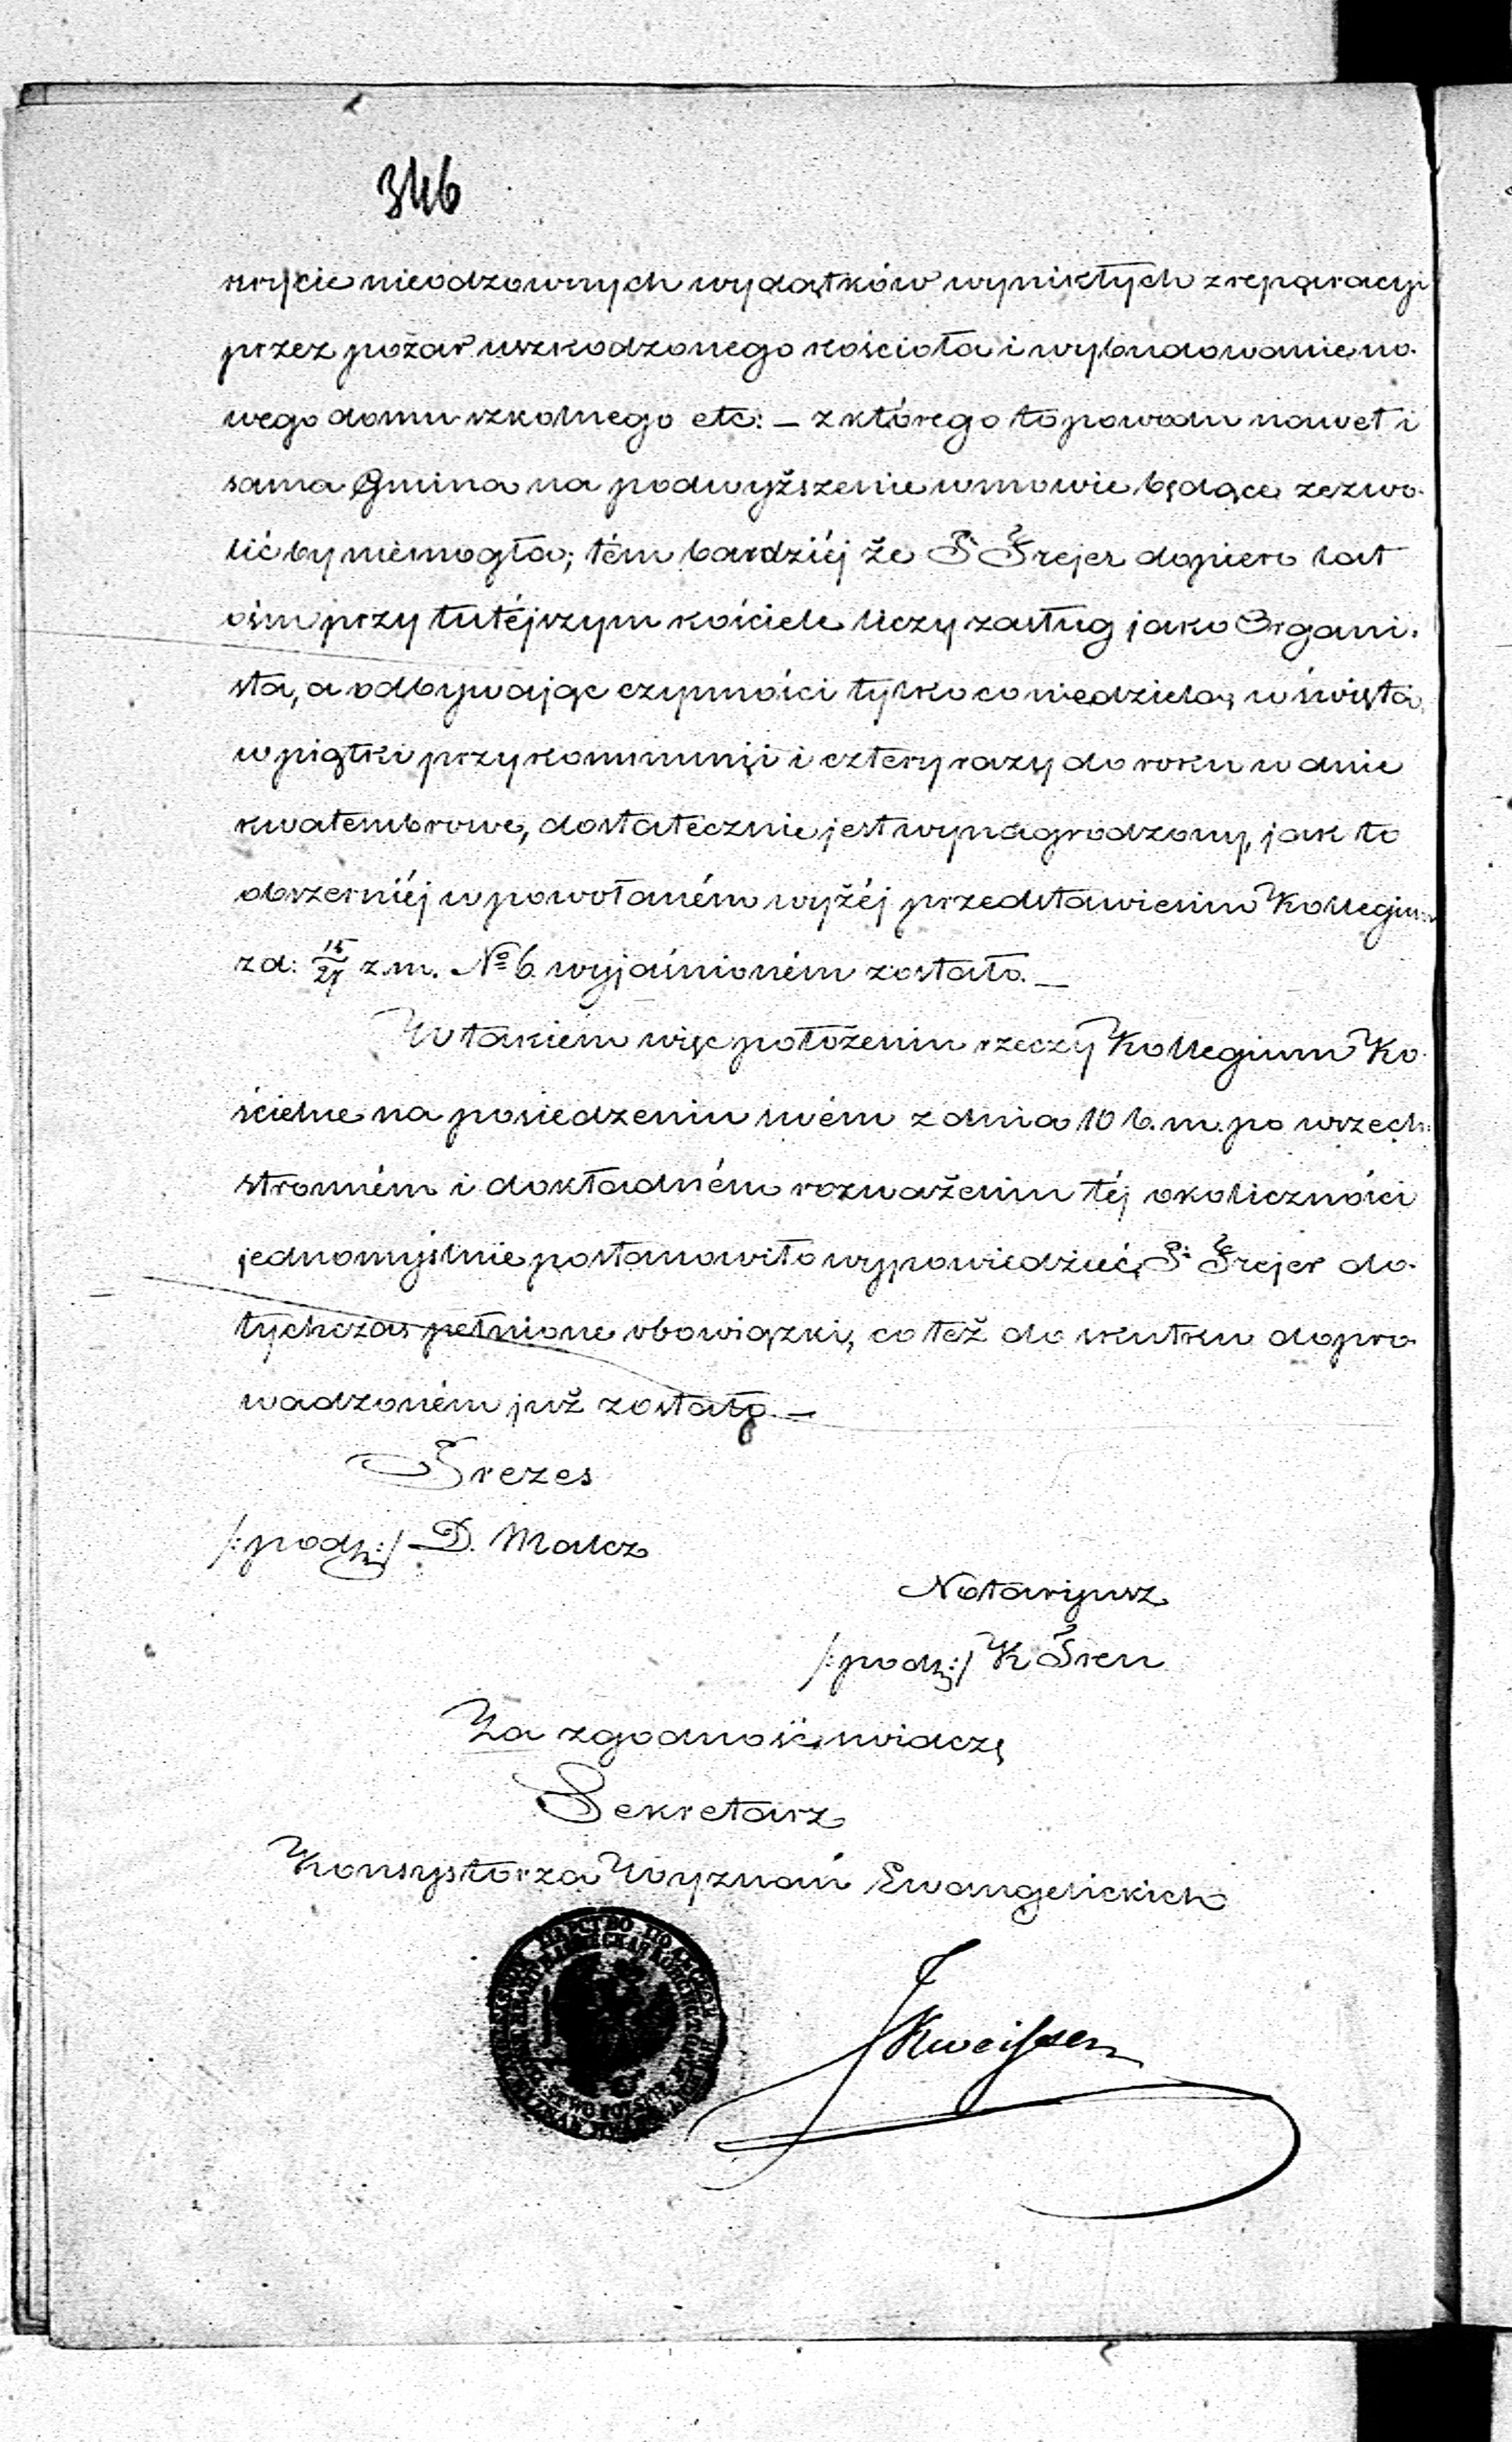 346
krycie nieodzownych wydatków wynikłych z reparacyi
przez pożar uszkodzonego kościoła i wybudowanie no-
wego domu szkolnego etc: – z którego to powodu nawet i
sama Gmina na podwyższenie w mowie będące zezwo-
lić by niemogła; tém bardziéj że P. Frejer dopiero lat
ośm przy tutéjszym kościele liczy zasług jako Organi-
sta, a odbywając czynności tylko co niedziela, w święta,
w piątki przy kommunii i cztery razy do roku w dnie
kwatembrowe, dostatecznie jest wynagrodzony, jak to
obszerniéj w powołaném wyżéj przedstawieniu Kollegium
z d: 15/27 z. m. № 6 wyjaśnioném zostało. –
W takiem więc położeniu rzeczy Kollegium Ko-
ścielne na posiedzeniu swém z dnia 10 b. m. po wszech-
stronném i dokładném rozważeniu téj okoliczności
jednomyślnie postanowiło wypowiedzieć P. Frejer do-
tychczas pełnione obowiązki, co też do skutku dopro-
wadzoném już zostało –
Prezes
/:podp:/ D. Malcz
Notaryusz
/:podp:/ K
Za zgodność świadczę
Sekretarz
Konsystorza Wyznań Ewangelickich